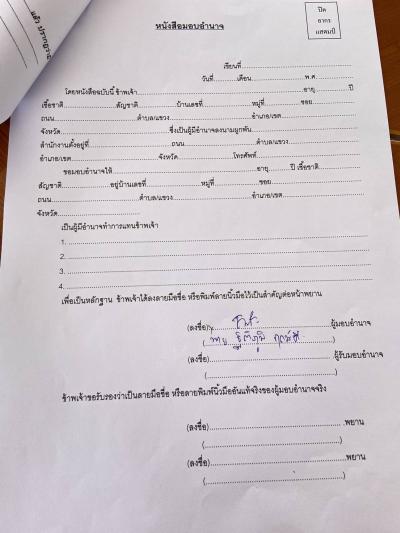 แล้ว ปรากฏว่า
ปิด
อากร
แสตมป์
หนังสือมอบอำนาจ
เขียนที่................................
วันที่............เดือน....................พ.ศ...............
โดยหนังสือฉบับนี้ ข้าพเจ้า............................................................อายุ...............ปี
เชื้อชาติ....................สัญชาติ....................บ้านเลขที่....................หมู่ที่............ซอย....................
ถนน..............................ตำบล/แขวง..............................อำเภอ/เขต..............................
จังหวัด..............................ซึ่งเป็นผู้มีอำนาจลงนามผูกพัน..............................
สำนักงานตั้งอยู่ที่..............................ถนน..............................ตำบล/แขวง....................
อำเภอ/เขต..............................จังหวัด....................โทรศัพท์..............................
ขอมอบอำนาจให้..................................................อายุ..........ปี เชื้อชาติ....................
สัญชาติ....................อยู่บ้านเลขที่....................หมู่ที่....................ซอย....................
ถนน..............................ตำบล/แขวง..............................อำเภอ/เขต..............................
จังหวัด..............................
เป็นผู้มีอำนาจทำการแทนข้าพเจ้า
1. ............................................................
2. ............................................................
3. ............................................................
4. ............................................................
เพื่อเป็นหลักฐาน ข้าพเจ้าได้ลงลายมือชื่อ หรือพิมพ์ลายนิ้วมือไว้เป็นสำคัญต่อหน้าพยาน
(ลงชื่อ)..............................ผู้มอบอำนาจ
(นาย ฐิติภูมิ)
(ลงชื่อ)..............................ผู้รับมอบอำนาจ
(..............................)
ข้าพเจ้าขอรับรองว่าเป็นลายมือชื่อ หรือลายพิมพ์นิ้วมืออันแท้จริงของผู้มอบอำนาจจริง
(ลงชื่อ)..............................พยาน
(..............................)
(ลงชื่อ)..............................พยาน
(..............................)